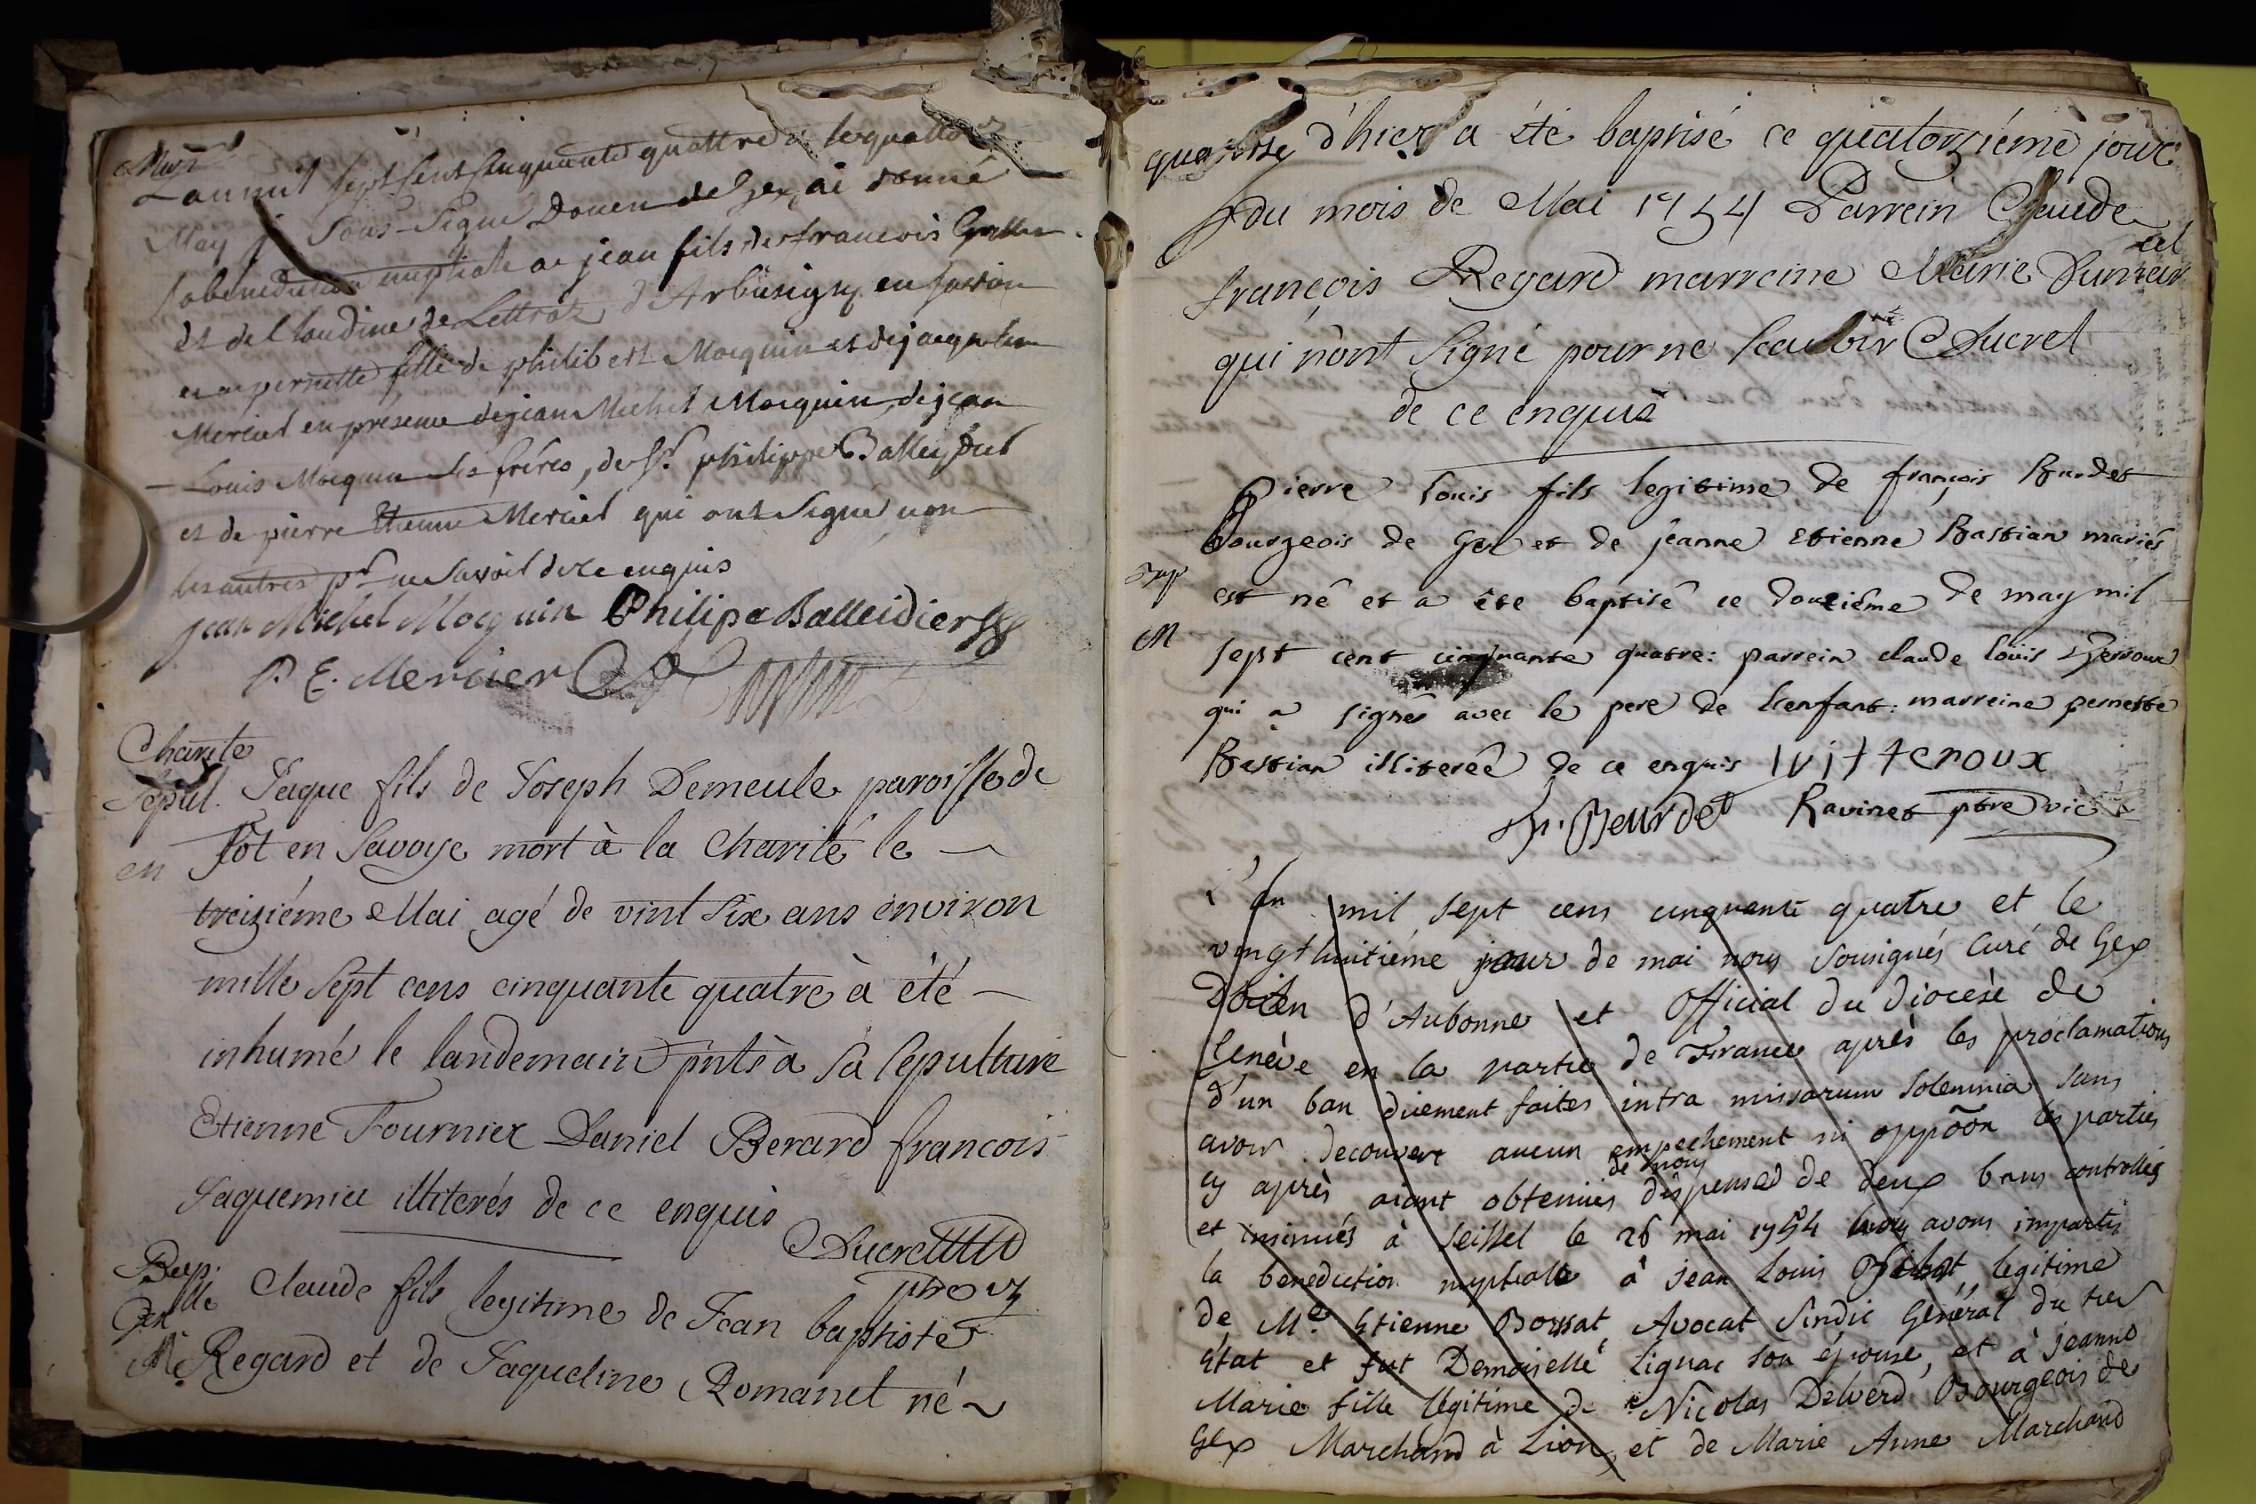 L'an mil sept cent cinquante quattre & le quattorz
May je sous-signé Doyen de Gex, ai donné
la benediction nuptiale a jean fils de francois
et de Claudine de Lettraz d'Arbusigny en savoie
et a pernette fille de philibert Mocquin et de jacqueline
Mercier en presence de jean Michel Mocquin, de jean
Louis Mocquin ses fréres, de Sr. philippe Balleydier
et de pierre Etienne Mercier qui ont signé, non
les autres pr. ne savoir de ce enquis
jean Michel Mocquin Philipe Balleidier
P. E. Mercier
Charité
Sepul. Jaque fils de Joseph Demeule paroisse de
en Jôt en Savoye mort à la Charité le
treiziéme Mai agé de vint six ans environ
mille sept cens cinquante quatre à été
inhumé le landemain pnts à sa sepulture
Etienne Fournier Daniel Berard francois
Jaquemier illiterés de ce enquis
Ducret
ptre vic
Bap.
Gex Claude fils legitime de Jean baptiste
M. Regard et de Jaqueline Romanet né
d'hier a été baptisé ce quatorziéme jour
du mois de Mai 1754 Parrein Claude
françois Regard marreine Marie
qui n'ont signé pour ne scavoir Ducret
de ce enquis
Pierre Louis fils legitime de françois Burdet
Bourgeois de Gex et de jeanne Etienne Bastian mariés
Bap est né et a été baptisé ce douziéme de may mil
M sept cent cinquante quatre: parrein claude loüis
qui a signé avec le pere de l'enfant: marreine pernette
Bastian illiterée de ce enquis
fr. Beurdet Ravinet ptre vic
L'an mil sept cens cinquante quatre et le
vingt huitiéme jour de mai nous sousignés Curé de Gex
Doïen d'Aubonne et Official du diocèse de
Genève en la partie de France après les proclamations
d'un ban düement faites intra missarum solemnia sans
avoir decouvert aucun empechement ni oppõon les parties
de nous
cy après aiant obtenües dispense de deux bans controllés
et insinués à Seissel le 26 mai 1754 avons imparti
la benediction nuptiale à jean Louis legitime
de Me. Etienne Borssat, Avocat Sindic Général du tier
état et fut Demoiselle Lignac son épouse, et à jeanne
Marie fille légitime de Nicolas Delverd Bourgeois de
Gex Marchand à Lion, et de Marie Anne Marchand